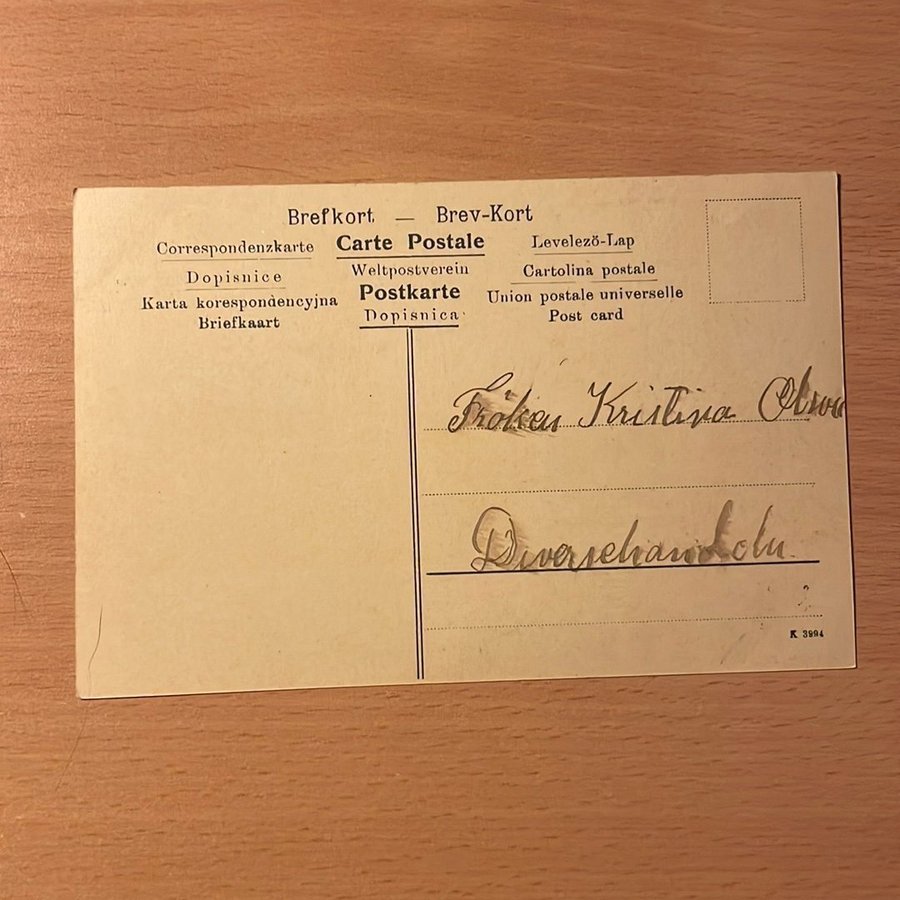 Brefkort — Brev-Kort
Correspondenzkarte Carte Postale Levelezö-Lap
Dopisnice Weltpostverein Cartolina postale
Karta korespondencyjna Postkarte Union postale universelle
Briefkaart Dopisnica Post card
Fröken Kristina
Diversehandeln
K 3994